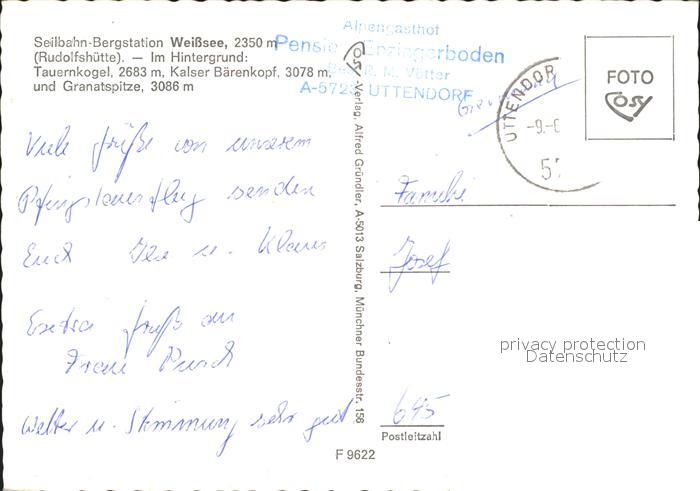 Seilbahn-Bergstation Weißsee, 2350 m
(Rudolfshütte). — Im Hintergrund:
Tauernkogel, 2683 m, Kalser Bärenkopf, 3078 m,
und Granatspitze, 3086 m
Alpengasthof
Pension Enzingerboden
R. M. Vötter
UTTENDORF
UTTENDORF
-9.-6
57
FOTO
Cosy
Cosy-Verlag, Alfred Gründler, A-5013 Salzburg, Münchner Bundesstr. 156
Viele Grüße von unserem
Pfingstausflug senden
Euch Ilse u. Klaus
Extra Gruß an
Frau
Wetter u. Stimmung sehr gut
Familie
Josef
privacy protection
Datenschutz
645
Postleitzahl
F 9622